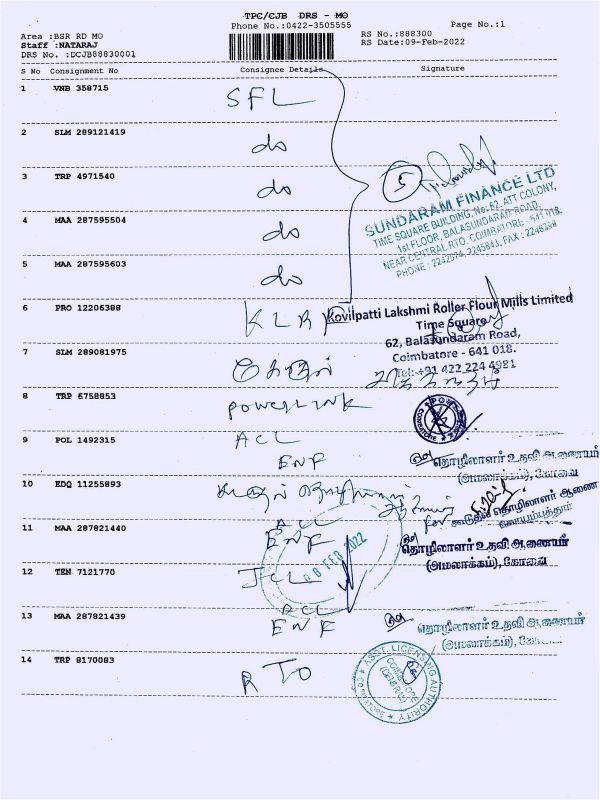 TPC/CJB DRS - MO
Phone No.:0422-3505555
Page No.:1
Area :BSR RD MO
Staff :NATARAJ
DRS No. :DCJB88830001
RS No.:888300
RS Date:09-Feb-2022
S No Consignment No Consignee Details Signature
1 VNB 358715 SFL
2 SLM 289121419 do
3 TRP 4971540 do
5
SUNDARAM FINANCE LTD
TIME SQUARE BUILDING, No: 62, ATT COLONY,
1st FLOOR, BALASUNDARAM ROAD,
NEAR CENTRAL RTO, COIMBATORE - 641 018.
PHONE : 2242974, 2245843, FAX : 2246399
4 MAA 287595504 do
5 MAA 287595603 do
6 PRO 12206388 KLRF
Kovilpatti Lakshmi Roller Flour Mills Limited
Time Square
62, Balasundaram Road,
Coimbatore - 641 018.
Tel:+91 422 224 4981
7 SLM 289081975
8 TRP 6758853 POWERLINK
9 POL 1492315 ACL
ENF
தொழிலாளர் உதவி ஆணையர்
(அமலாக்கம்), கோவை
10 EDQ 11255893
கூடுதல் தொழிலாளர் ஆணை
கோயம்புத்தூர்
11 MAA 287821440 ACL
ENF
தொழிலாளர் உதவி ஆணையர்
(அமலாக்கம்), கோவை
08 FEB 2022
12 TEN 7121770 JCL
13 MAA 287821439 ACL
ENF
தொழிலாளர் உதவி ஆணையர்
(அமலாக்கம்),
14 TRP 8170083 RTO
ASST. LICENSING AUTHORITY
COIMBATORE
(CENTRAL)